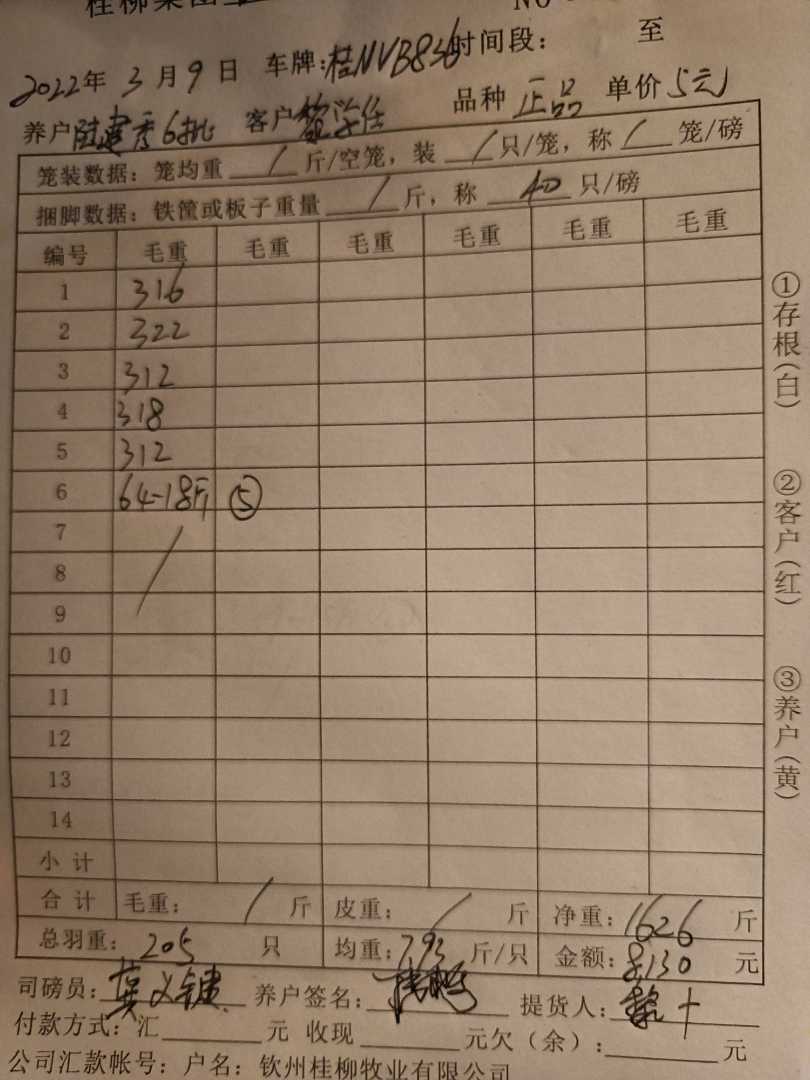 桂柳集团 NO
2022年 3月9日 车牌:桂NVB836 时间段: 至
养户 陆建秀6批 客户 黎学任 品种 正品 单价 5元
笼装数据: 笼均重 / 斤/空笼, 装 / 只/笼, 称 / 笼/磅
捆脚数据: 铁筐或板子重量 / 斤, 称 40 只/磅
编号 毛重 毛重 毛重 毛重 毛重 毛重
1 316
2 322
3 312
4 318
5 312
6 64-18斤 ⑤
7
8 /
9
10
11
12
13
14
小计
合计 毛重: / 斤 皮重: / 斤 净重: 1626 斤
总羽重: 205 只 均重: 7.93 斤/只 金额: 8130 元
司磅员: 养户签名: 提货人:
付款方式: 汇 元 收现 元欠(余): 元
公司汇款帐号: 户名: 钦州桂柳牧业有限公司
①存根(白)
②客户(红)
③养户(黄)